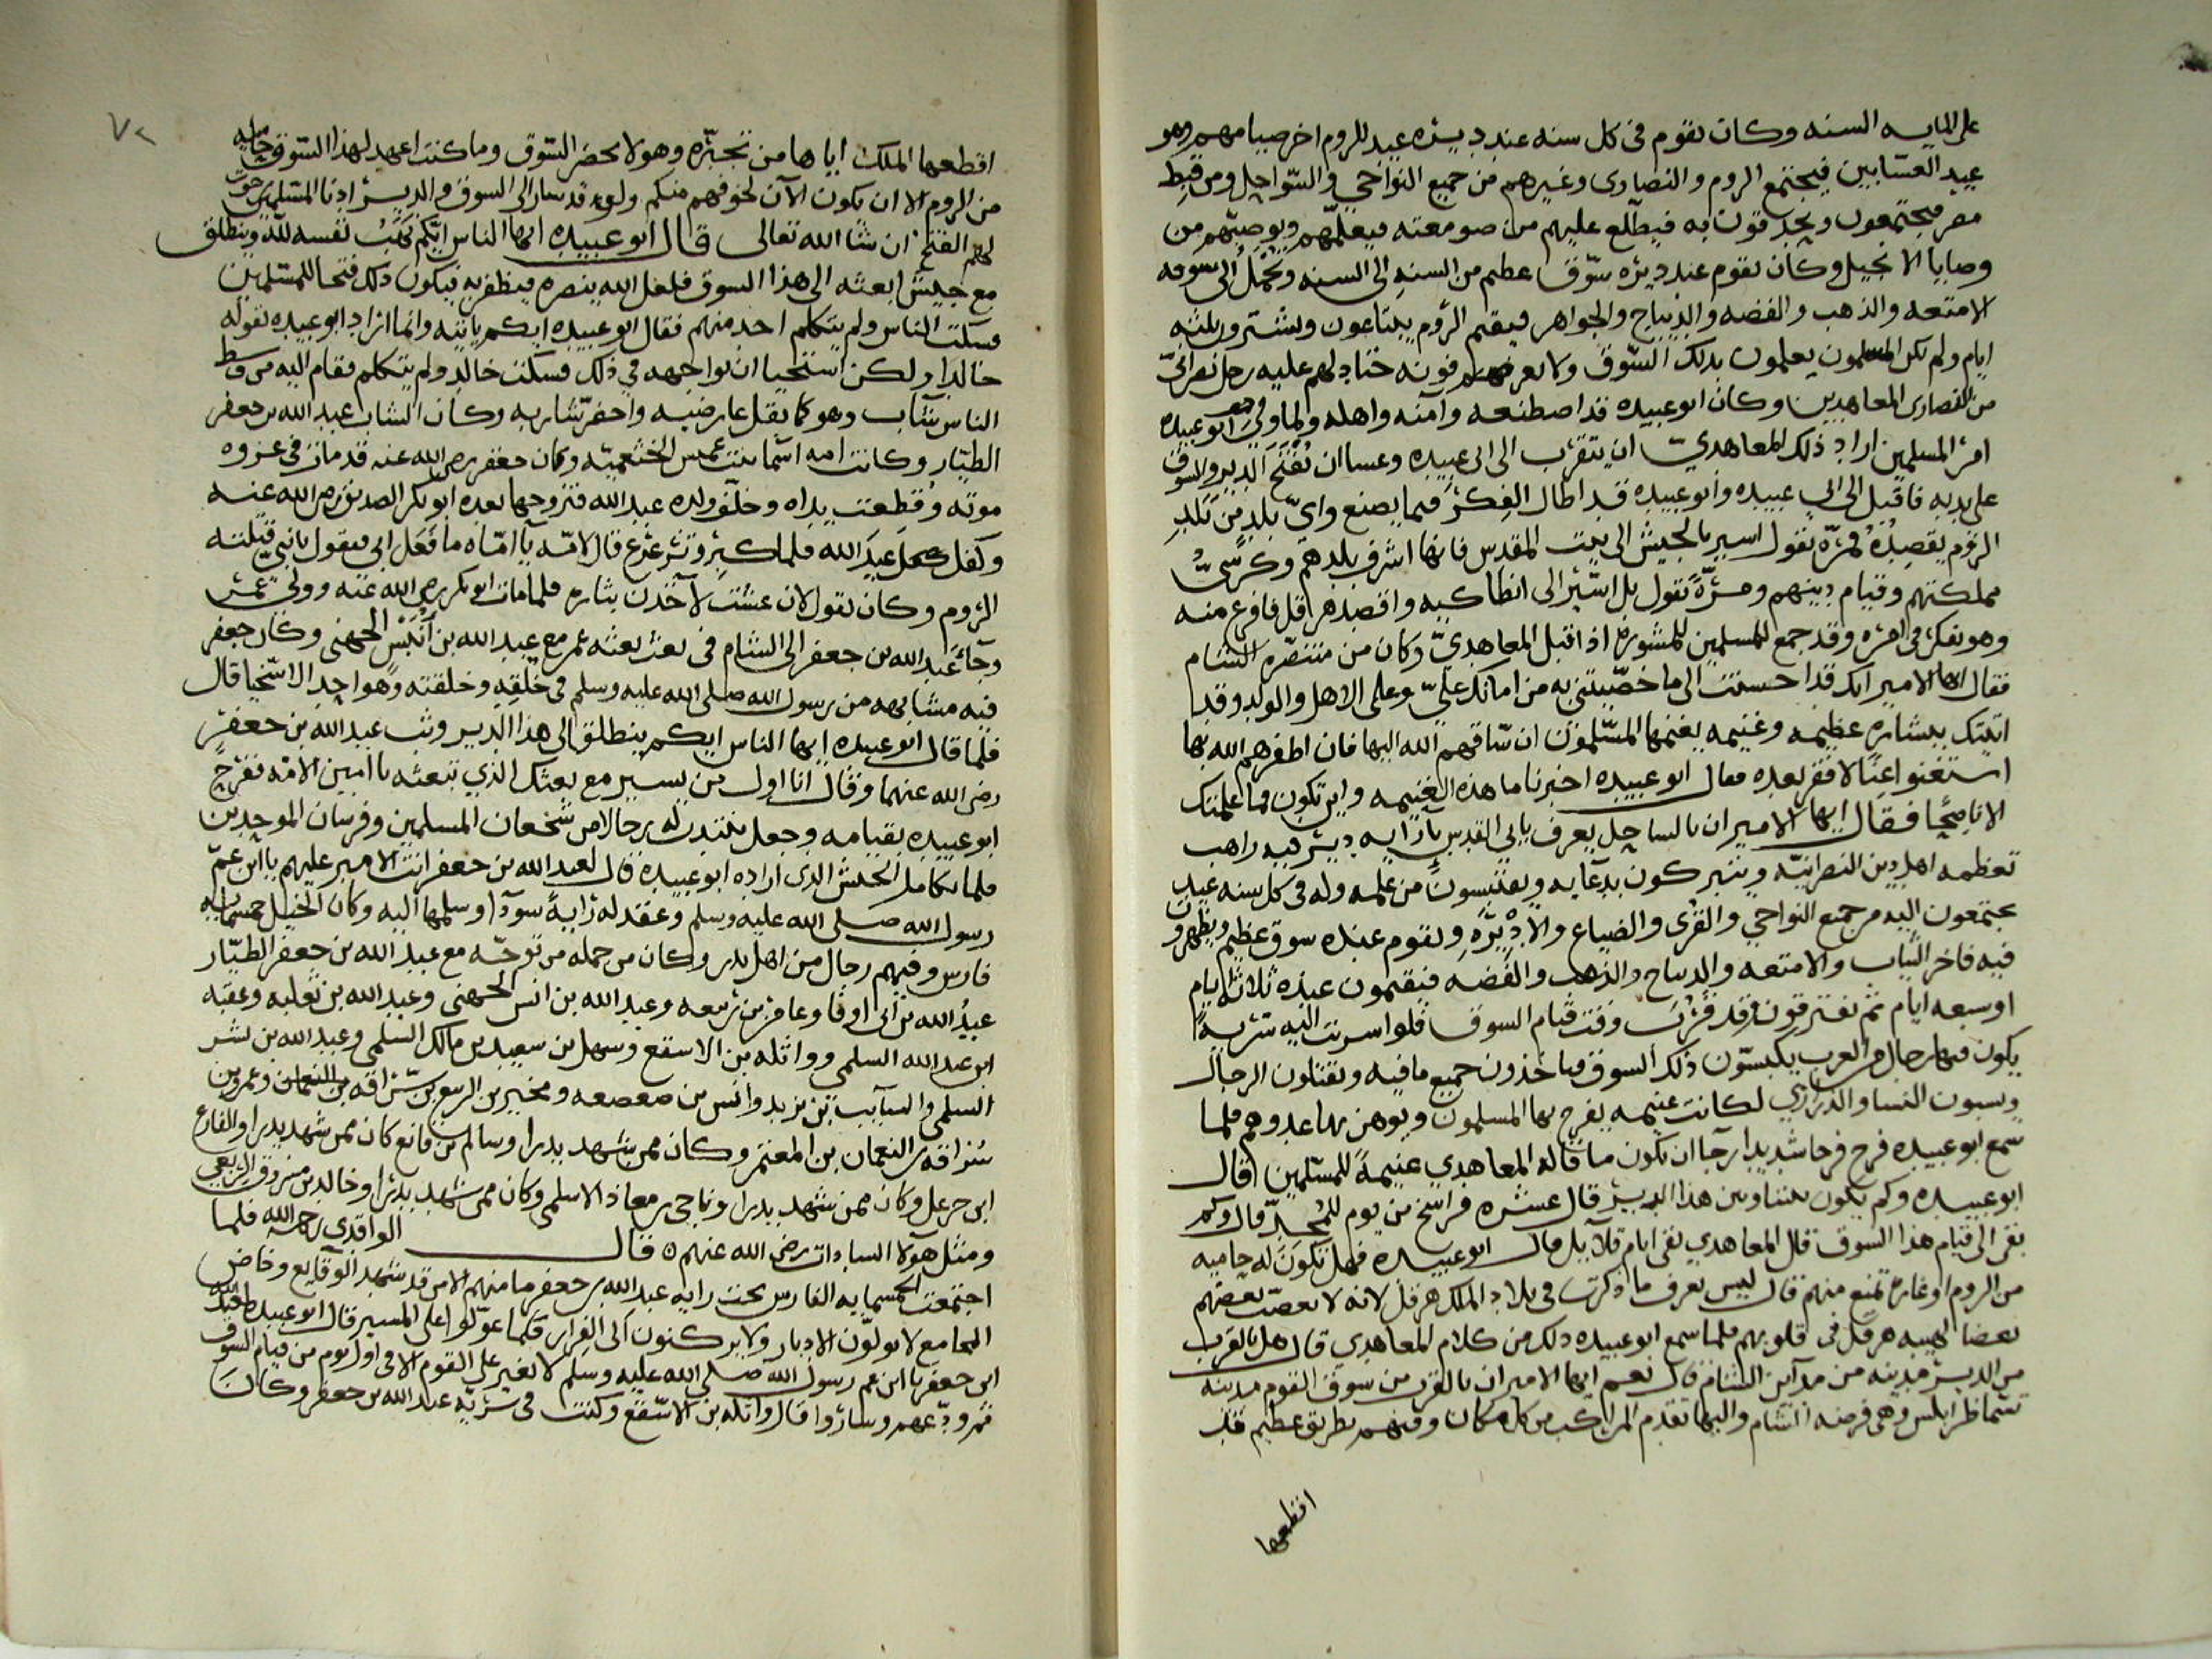 على المايه السنه وكان يقوم فى كل سنه عند ديره عيد للروم اخر صيامهم وهو
عيد العشابين فيجتمع الروم والنصارى وغيرهم من جميع النواحي والسواحل ومن قبط
مصر فيجتمعون ويحدقون به فيطلع عليهم من صومعته فيعلمهم ويوصيهم من
وصايا الانجيل وكان يقوم عند ديره سوق عظيم من السنه الى السنه وتحمل الى سوقه
الامتعه والذهب والفضه والديباج والجواهر فيقيم الروم يبتاعون ويشترون ثلثه
ايام ولم تكن المسلمون يعلمون بذلك السوق ولا يعرفونه حتا دلهم عليه رجل نصراني
من النصارى المعاهدين وكان ابو عبيده قد اصطنعه وآمنه واهله ولما ولي ابو عبيده
امر المسلمين اراد ذلك المعاهدي ان يتقرب الى ابى عبيده وعسا ان تفتح الدير والسوق
على يديه فاقبل الى ابي عبيده وابو عبيده قد اطال الفكر فيما يصنع واي بلد من بلد
الروم يقصد فمرة يقول اسير بالجيش الى بيت المقدس فانها اشرف بلدهم وكرسي
مملكتهم وقيام دينهم ومرة يقول بل اسير الى انطاكيه واقصد هرقل فافرغ منه
وهو يفكر فى امره وقد جمع المسلمين للمشوره اذ اقبل المعاهدي وكان من متنصره الشام
فقال ايها الامير انك قد احسنت الى ما خصيتني به من امانك علي وعلى الاهل والولد وقد
اتيتك ببشاره عظيمه وغنيمه يغنمها المسلمون ان ساقهم الله اليها فان اظفرهم الله بها
استغنوا غنا لا فقر بعده فقال ابو عبيده اخبرنا ما هذه الغنيمه واين تكون فما علمتك
الا ناصحا فقال ايها الامير ان بالساحل يعرف بابي القدس بازايه دير فيه راهب
تعظمه اهل دين النصرانيه ويتبركون بدعايه ويقتبسون من علمه وله فى كل سنه عيد
يجتمعون اليه من جميع النواحي والقرى والضياع والاديره ويقوم عنده سوق عظيم ويظهرون
فيه فاخر الثياب والامتعه والديباج والذهب والفضه فيقيمون عنده ثلاثة ايام
او سبعه ايام ثم يفترقون وقد قرب وقت قيام السوق فلو اسرت اليه سرية
يكون فيها رجال من العرب يكبسون ذلك السوق فياخذون جميع ما فيه ويقتلون الرجال
ويسبون النسا والذراري لكانت غنيمه يفرح بها المسلمون ويوهن بها عدوهم فلما
سمع ابو عبيده فرح فرحا شديدا رجا ان يكون ما قاله المعاهدي غنيمة للمسلمين قال
ابو عبيده وكم يكون بيننا وبين هذا الدير قال عشره فراسخ من يوم للمجد قال وكم
بقى الى قيام هذا السوق قال المعاهدي بقى ايام قلايل قال ابو عبيده فهل تكون له حاميه
من الروم او غارة تمنع منهم قال ليس نعرف ما ذكرت فى بلاد الملك هرقل لانه لا بعضهم
بعضا لهيبه هرقل فى قلوبهم فلما سمع ابو عبيده ذلك من كلام المعاهدي قال هل بالقرب
من الدير مدينه من مداين الشام قال نعم ايها الامير ان بالقرب من سوق القوم مدينه
تسما طرابلس وهى فرضه الشام واليها تقدم المراكب من كل مكان وفيهم بطريق عظيم قد
اقطعها
٧٢
اقطعها الملك اياها من تجبره وهو لا يحضر السوق وما كنت اعهد لهذا السوق حاميه
من الروم الا ان يكون الآن لخوفهم منكم ولو قد سار الى السوق والدير ادنا المسلمين رجوت
لهم الفتح ان شا الله تعالى قال ابو عبيده ايها الناس ايكم يهب نفسه لله وينطلق
مع جيش ابعثه الى هذا السوق فلعل الله ينصره فيظفر به فيكون ذلك فتحا للمسلمين
فسكت الناس ولم يتكلم احد منهم فقال ابو عبيده ايكم ياتيه وانما اراد ابو عبيده بقوله
خالدا ولكن استحيا ان يواجهه في ذلك فسكت خالد ولم يتكلم فقام اليه من وسط
الناس شاب وهو كما بقل عارضيه واخضر شاربه وكان الشاب عبد الله بن جعفر
الطيار وكانت امه اسما بنت عميس الخثعميه وكان جعفر رضى الله عنه قد مات فى غزوه
موته وقطعت يداه وخلف ولده عبد الله فتزوجها بعده ابو بكر الصديق رضى الله عنه
وكفل عبد الله فلما كبر وترعرع قال لامه يا اماه ما فعل ابى فيقول يا بني قتلته
الروم وكان يقول لان عشت لآخذن بثاره فلما مات ابو بكر رضى الله عنه وولى عمر
وجآ عبد الله بن جعفر الى الشام فى بعث بعثه عمر مع عبد الله بن انيس الجهنى وكان جعفر
فيه مشابهه من رسول الله صلى الله عليه وسلم فى خلقه وخلقته وهو احد الاسخيا قال
فلما قال ابو عبيده ايها الناس ايكم ينطلق الى هذا الدير وثب عبد الله بن جعفر
رضى الله عنهما وقال انا اول من يسير مع بعثك الذي تبعثه يا امين الامه ففرح
ابو عبيده بقيامه وجعل ينتدب له رجالا من شجعان المسلمين وفرسان الموحدين
فلما تكامل الجيش الذى اراده ابو عبيده قال لعبد الله بن جعفر انت الامير عليهم يا ابن عم
رسول الله صلى الله عليه وسلم وعقد له راية سودآ وسلمها اليه وكان الخيل خمسمايه
فارس وفيهم رجال من اهل بدر وكان من جمله من توجه مع عبد الله بن جعفر الطيار
عبد الله بن ابى اوفا وعامر بن ربيعه وعبد الله بن انس الجهنى وعبد الله بن ثعلبه وعقبه
ابن عبد الله السلمى وواثله بن الاسقع وسهل بن سعيد بن مالك السلمى وعبد الله بن بشر
السلمى والسايب بن يزيد وانس بن صعصعه ومخير بن الربيع بن سراقه بن النعمان وعمرو بن
سراقه بن النعمان بن المعتمر وكان ممن شهد بدرا وسالم بن قانع كان ممن شهد بدرا والفارع
ابن حرعل وكان ممن شهد بدرا وناجى بن معاذ الاسلمى وكان ممن شهد بدرا وخالد بن مرزوق الربعى
ومثل هولآ السادات رضى الله عنهم قال الواقدى رحمه الله فلما
اجتمعت الخمسمايه الفارس تحت رايه عبد الله بن جعفر ما منهم الا من قد شهد الوقايع وخاض
المجامع لا يولون الادبار ولا يركنون الى الفرار فلما عولوا على المسير قال ابو عبيده
ابن جعفر يا ابن عم رسول الله صلى الله عليه وسلم لا تغير على القوم الا فى اول يوم من قيام السوق
ثم ودعهم وساروا قال واثله بن الاسقع وكنت فى سرية عبد الله بن جعفر وكان